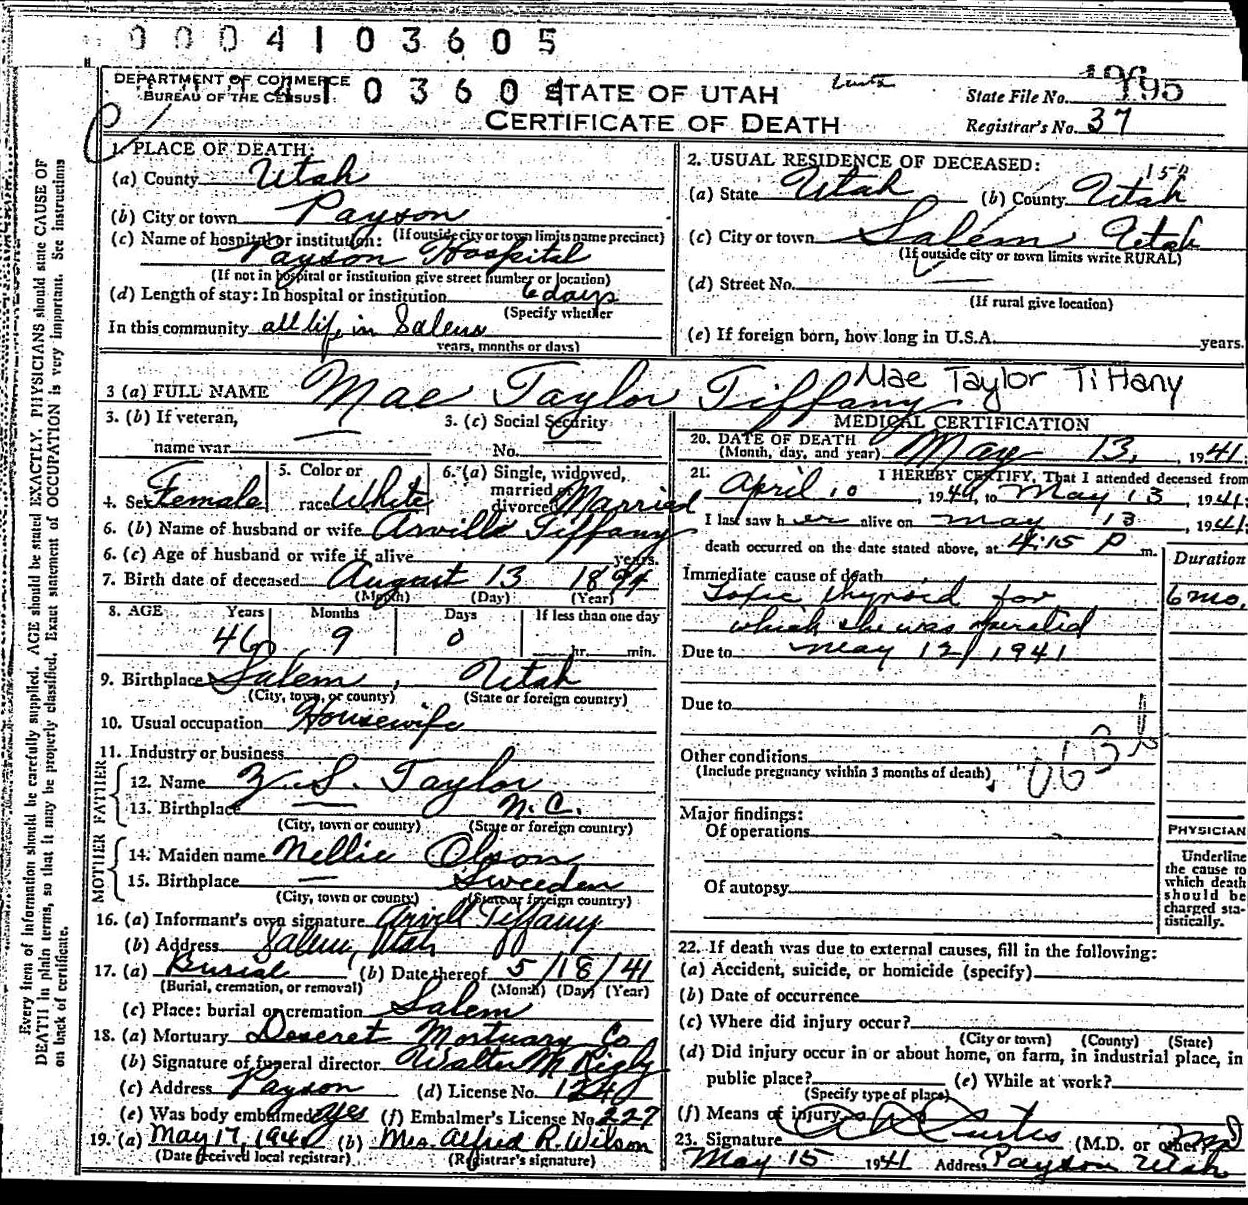 0 0 0 4 1 0 3 6 0 5
DEPARTMENT OF COMMERCE
BUREAU OF THE CENSUS
STATE OF UTAH
CERTIFICATE OF DEATH
State File No. 195
Registrar's No. 37
Every item of information should be carefully supplied. AGE should be stated EXACTLY. PHYSICIANS should state CAUSE OF
DEATH in plain terms, so that it may be properly classified. Exact statement of OCCUPATION is very important. See instructions
on back of certificate.
1. PLACE OF DEATH:
(a) County Utah
(b) City or town Payson
(If outside city or town limits name precinct)
(c) Name of hospital or institution:
Payson Hospital
(If not in hospital or institution give street number or location)
(d) Length of stay: In hospital or institution 6 days
(Specify whether
In this community all life in Salem
years, months or days)
2. USUAL RESIDENCE OF DECEASED:
(a) State Utah (b) County Utah
(c) City or town Salem Utah
(If outside city or town limits write RURAL)
(d) Street No.
(If rural give location)
(e) If foreign born, how long in U.S.A. years.
3 (a) FULL NAME Mae Taylor Tiffany
Mae Taylor Tiffany
3. (b) If veteran,
name war
3. (c) Social Security
No.
4. Sex Female
5. Color or
race White
6. (a) Single, widowed,
married or
divorced Married
6. (b) Name of husband or wife Arvill Tiffany
6. (c) Age of husband or wife if alive years.
7. Birth date of deceased August 13 1894
(Month) (Day) (Year)
8. AGE Years Months Days If less than one day
46 9 0 hr. min.
9. Birthplace Salem, Utah
(City, town, or county) (State or foreign country)
10. Usual occupation Housewife
11. Industry or business
FATHER
12. Name Z. S. Taylor
13. Birthplace N.C.
(City, town or county) (State or foreign country)
MOTHER
14. Maiden name Nellie Olson
15. Birthplace Sweeden
(City, town or county) (State or foreign country)
16. (a) Informant's own signature Arvill Tiffany
(b) Address Salem, Utah
17. (a) Burial (b) Date thereof 5/18/41
(Burial, cremation, or removal) (Month) (Day) (Year)
(c) Place: burial or cremation Salem
18. (a) Mortuary Deseret Mortuary Co
(b) Signature of funeral director Walter M Rigby
(c) Address Payson (d) License No. 1240
(e) Was body embalmed yes (f) Embalmer's License No. 227
19. (a) May 17, 1941 (b) Mrs. Alfred R. Wilson
(Date received local registrar) (Registrar's signature)
MEDICAL CERTIFICATION
20. DATE OF DEATH
(Month, day, and year) May 13, 1941.
21. I HEREBY CERTIFY, That I attended deceased from
April 10, 1940, to May 13, 1941.
I last saw her alive on May 13, 1941.
death occurred on the date stated above, at 4:15 P m.
Duration
Immediate cause of death
Toxic thyroid for 6 mo.
which she was operated
Due to May 12/1941
Due to
Other conditions
(Include pregnancy within 3 months of death)
063b
Major findings:
Of operations
Of autopsy
PHYSICIAN
Underline
the cause to
which death
should be
charged sta-
tistically.
22. If death was due to external causes, fill in the following:
(a) Accident, suicide, or homicide (specify)
(b) Date of occurrence
(c) Where did injury occur?
(City or town) (County) (State)
(d) Did injury occur in or about home, on farm, in industrial place, in
public place? (e) While at work?
(Specify type of place)
(f) Means of injury
23. Signature Curtis (M.D. or other) MD
May 15 1941 Address Payson Utah